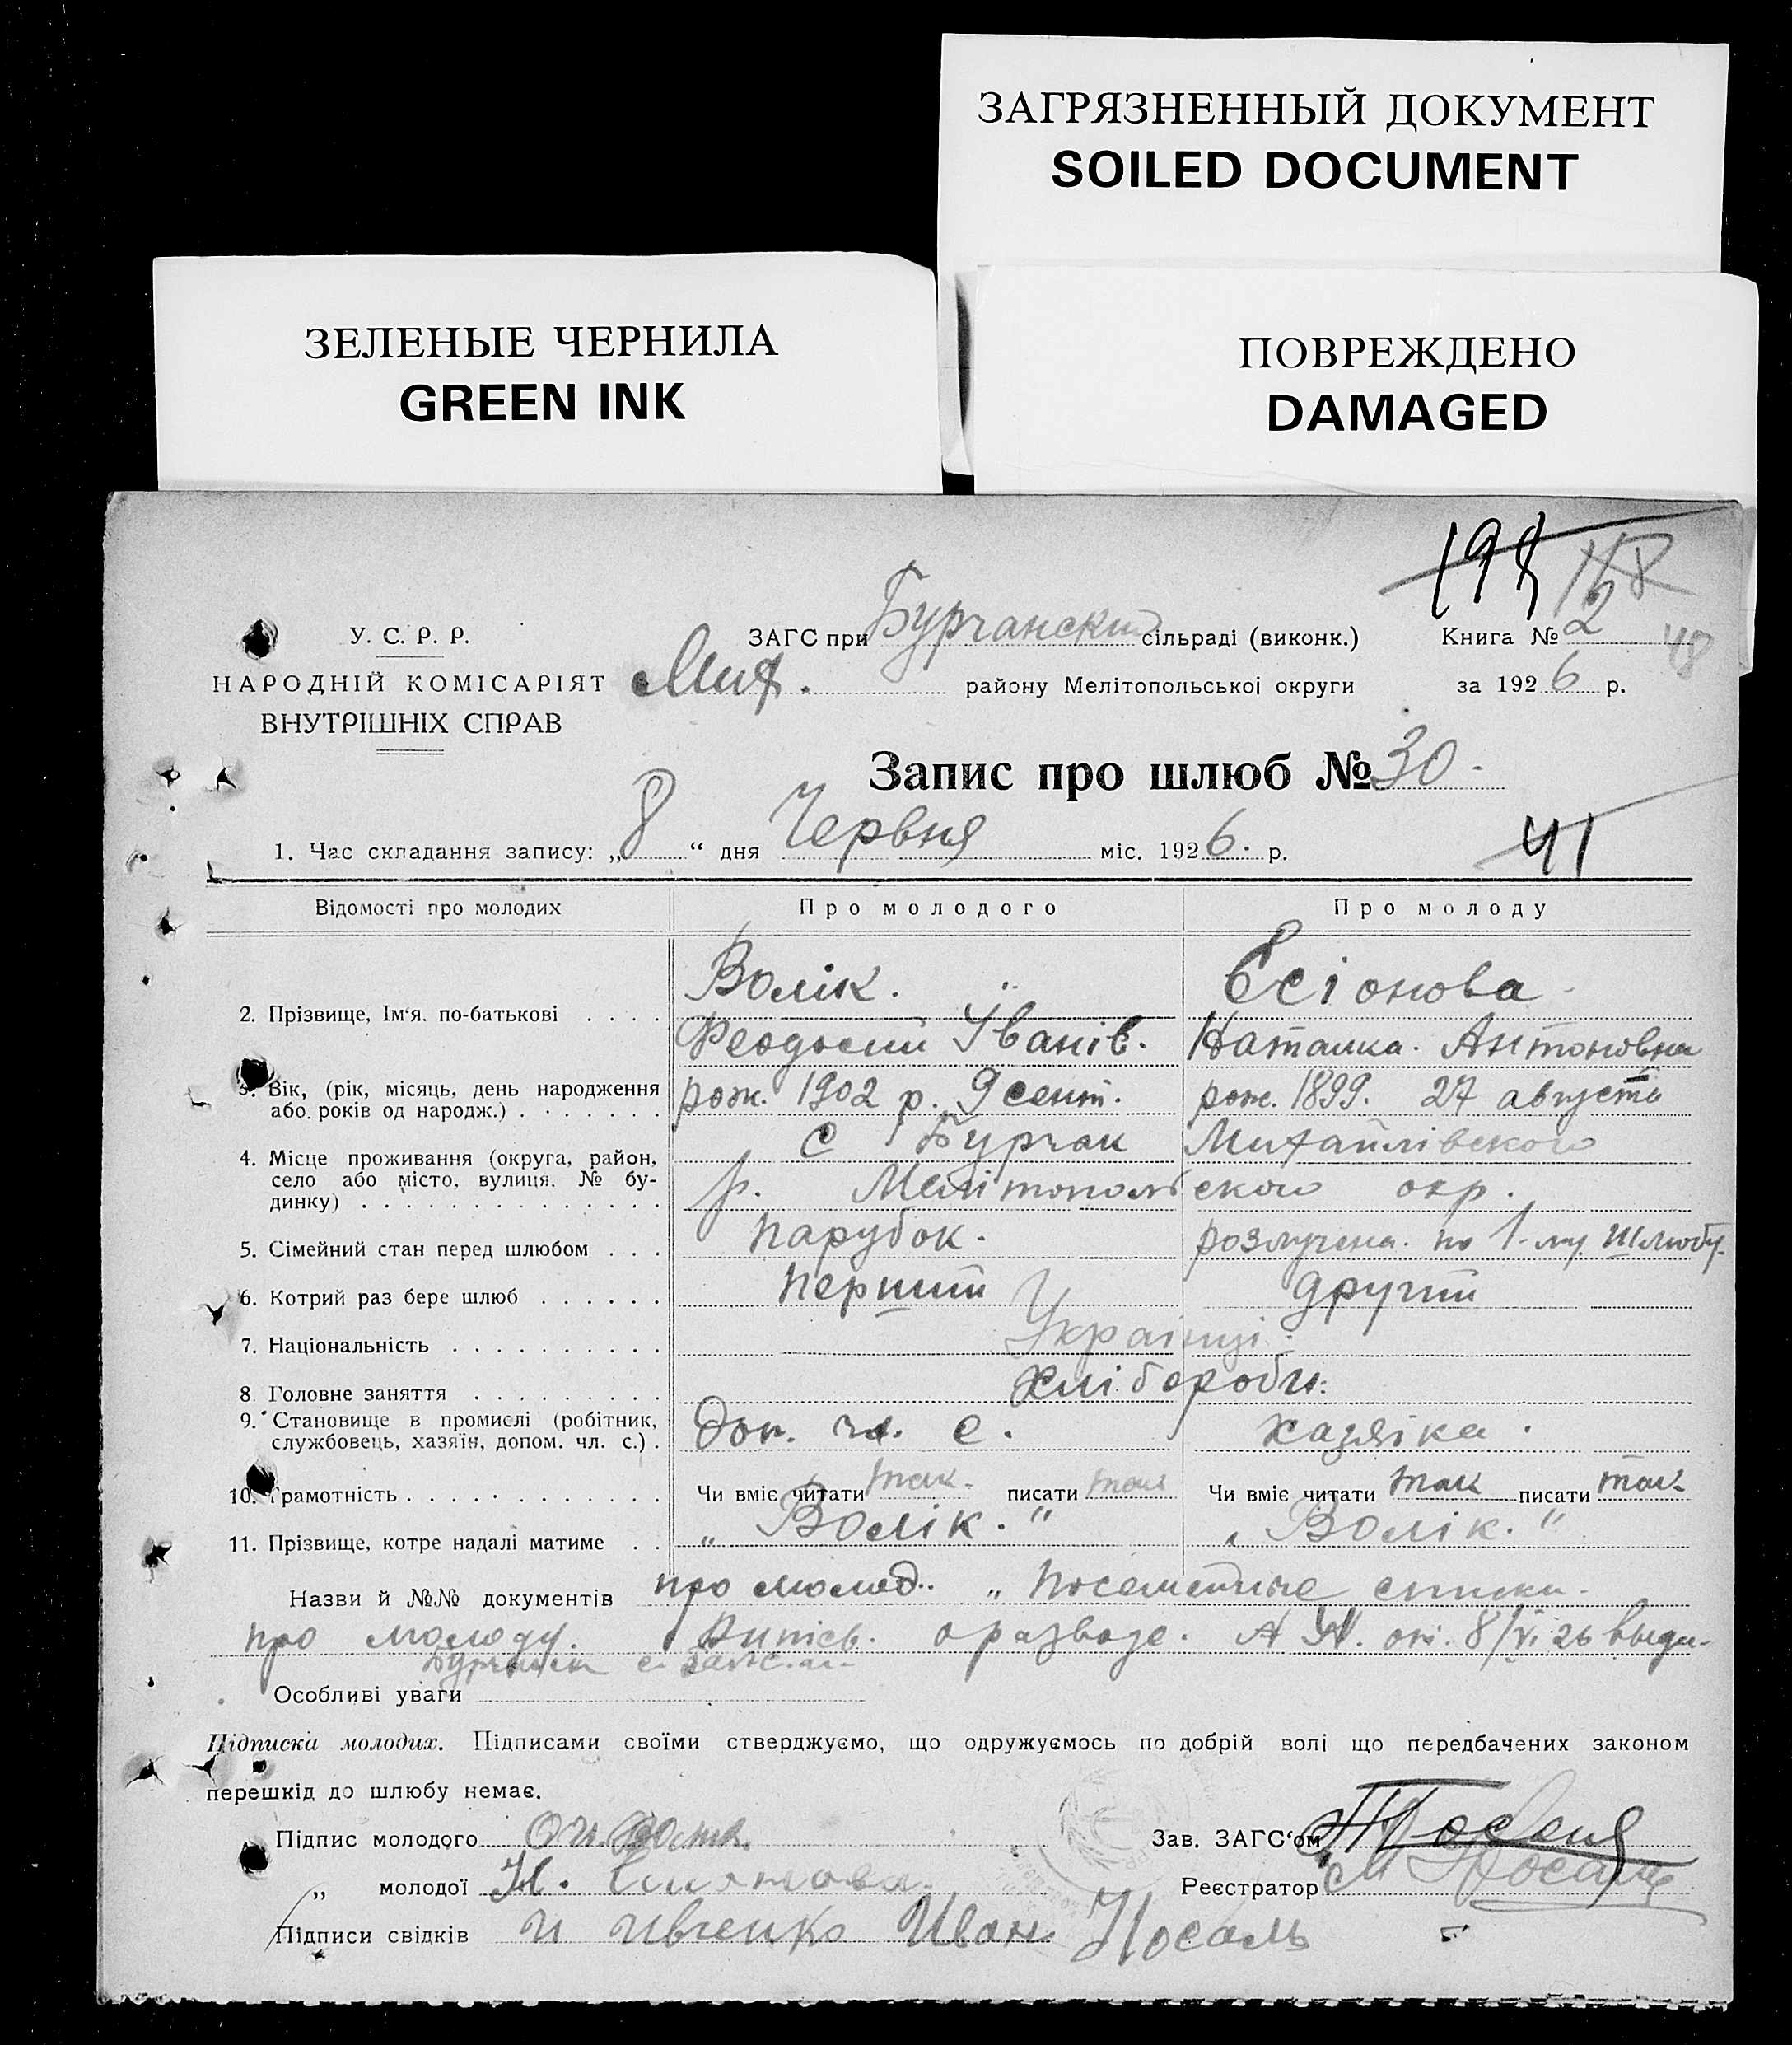 ЗАГРЯЗНЕННЫЙ ДОКУМЕНТ
SOILED DOCUMENT
ЗЕЛЕНЫЕ ЧЕРНИЛА
GREEN INK
ПОВРЕЖДЕНО
DAMAGED
У. С. Р. Р.
НАРОДНІЙ КОМІСАРІЯТ
ВНУТРІШНІХ СПРАВ
ЗАГС при Бурчанский сільраді (виконк.)
Мих. району Мелітопольської округи
Книга № 2
48
за 1926 р.
Запис про шлюб № 30
1. Час складання запису: „8“ дня Червня міс. 1926. р.
41
Відомості про молодих Про молодого Про молоду
2. Прізвище, Ім'я. по-батькові . . . . Волік. Єсіонова
Феодосий Іванів. Наталка. Антоновна
3. Вік, (рік, місяць, день народження або. років од народж.) . . . . . . . рож. 1902 р. 9 сент. рож. 1899. 27 августа
4. Місце проживання (округа, район, село або місто, вулиця. № будинку) . . . . . . . . . . . . . . с Бурчак Михайлівского
р. Мелітопольского окр.
5. Сімейний стан перед шлюбом . . . парубок. розлучена. по 1-му шлюбу.
6. Котрий раз бере шлюб . . . . . . перший другий
7. Національність . . . . . . . . . . Українці.
8. Головне заняття . . . . . . . . . Хлібороби.
9. Становище в промислі (робітник, службовець, хазяїн, допом. чл. с.) . Доп. чл. с. хазяіка.
10. Грамотність . . . . . . . . . . . . . Чи вміє читати так. писати так Чи вміє читати так писати так
11. Прізвище, котре надалі матиме . . „Волік.“ „Волік.“
Назви й №№ документів про молод. „Посемейные списки
про молоду. Випісь. о разводе. от. 8/VI 26 выда-
Особливі уваги
Підписка молодих. Підписами своїми стверджуємо, що одружуємось по добрій волі що передбачених законом
перешкід до шлюбу немає.
Підпис молодого
Зав. ЗАГС'ом
„ молодої Н.
Реєстратор Носаль
Підписи свідків И Ивченко Иван Носаль